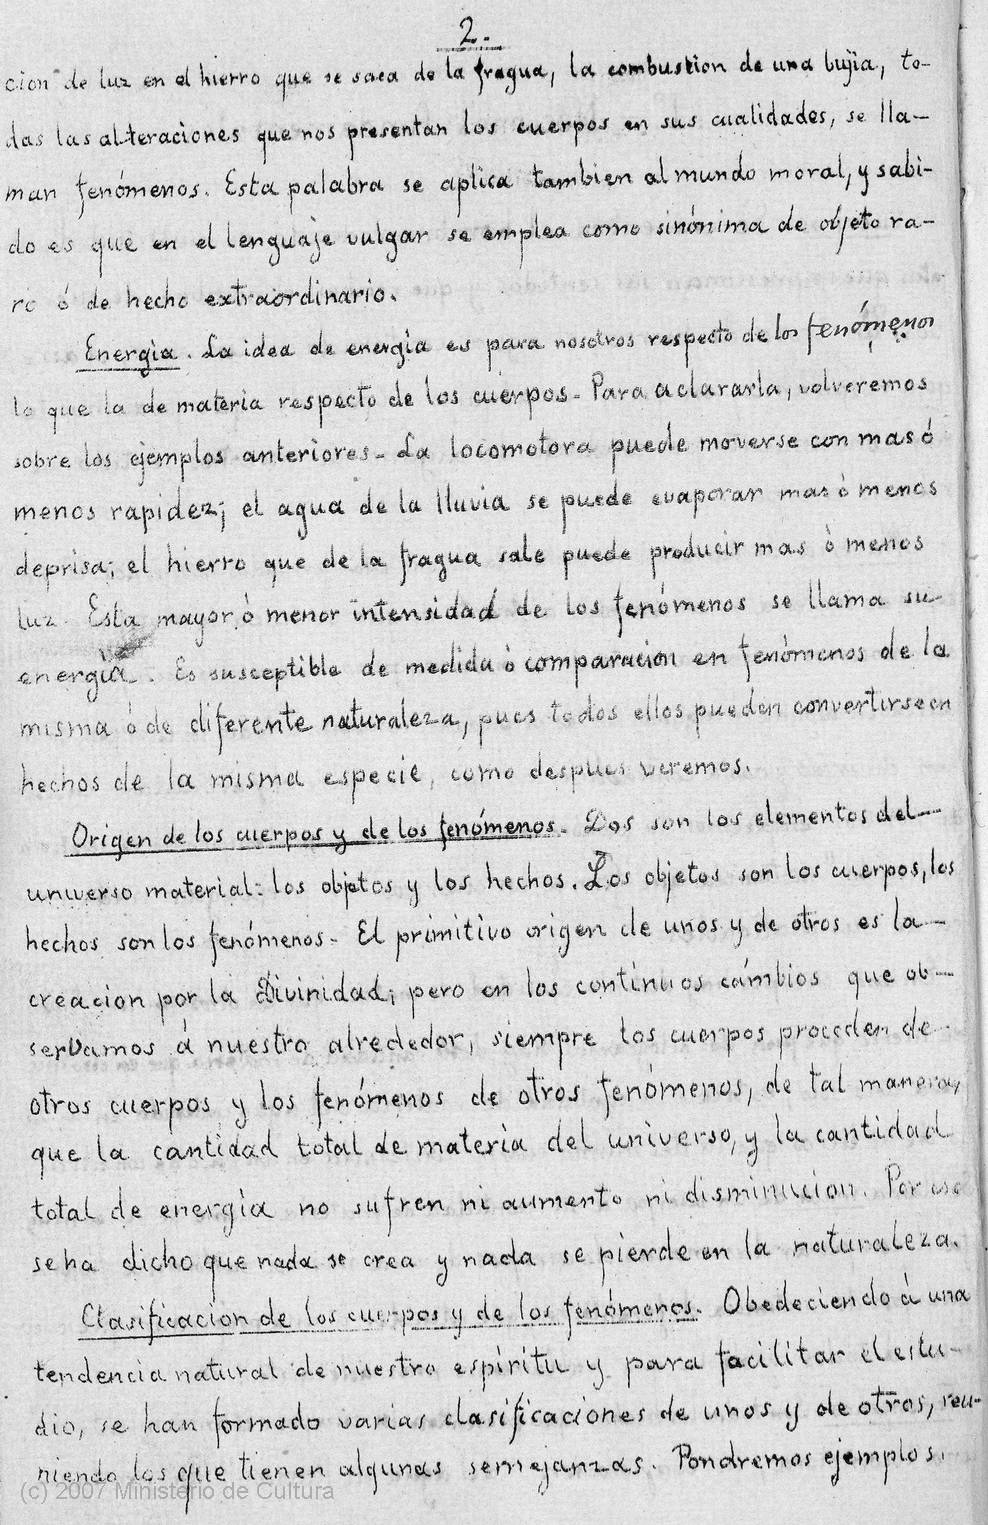 2.
cion de luz en el hierro que se saca de la fragua, la combustion de una bujia, to-
das las alteraciones que nos presentan los cuerpos en sus cualidades, se lla-
man fenómenos. Esta palabra se aplica tambien al mundo moral, y sabi-
do es que en el lenguaje vulgar se emplea como sinónima de objeto ra-
ro ó de hecho extraordinario.
Energìa. La idea de energìa es para nosotros respecto de los fenómenos
lo que la de materia respecto de los cuerpos. Para aclararla, volveremos
sobre los ejemplos anteriores. La locomotora puede moverse con mas ó
menos rapidez; el agua de la lluvia se puede evaporar mas ò menos
deprisa; el hierro que de la fragua sale puede producir mas ò menos
luz. Esta mayor ò menor intensidad de los fenómenos se llama su
energìa. Es susceptible de medida ò comparacion en fenómenos de la
misma ó de diferente naturaleza, pues todos ellos pueden convertirse en
hechos de la misma especie, como despues veremos.
Origen de los cuerpos y de los fenómenos. Dos son los elementos del
universo material: los objetos y los hechos. Los objetos son los cuerpos, los
hechos son los fenómenos. El primitivo origen de unos y de otros es la
creacion por la Divinidad; pero en los continuos cámbios que ob-
servamos á nuestro alrededor, siempre los cuerpos proceden de
otros cuerpos y los fenómenos de otros fenómenos, de tal manera,
que la cantidad total de materia del universo, y la cantidad
total de energìa no sufren ni aumento ni disminucion. Por eso
se ha dicho que nada se crea y nada se pierde en la naturaleza.
Clasificacion de los cuerpos y de los fenómenos. Obedeciendo à una
tendencia natural de nuestro espíritu y para facilitar el estu-
dio, se han formado varias clasificaciones de unos y de otros, reu-
niendo los que tienen algunas semejanzas. Pondremos ejemplos.
(c) 2007 Ministerio de Cultura